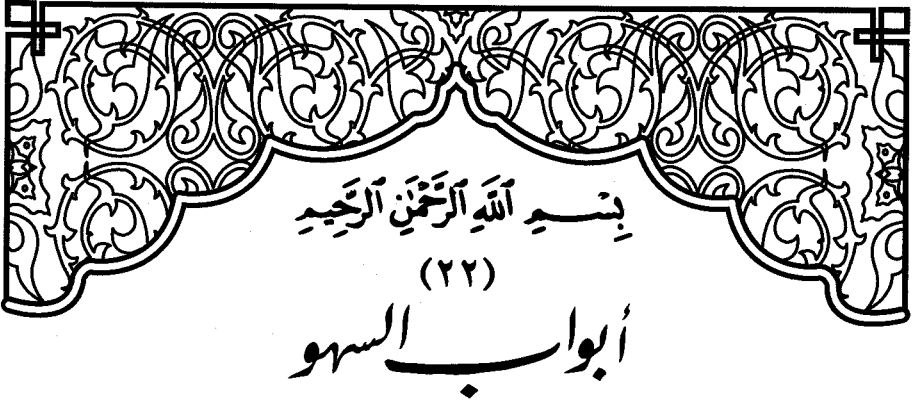 بِسْمِ ٱللَّهِ ٱلرَّحْمَٰنِ ٱلرَّحِيمِ
(٢٢)
أبواب السهو